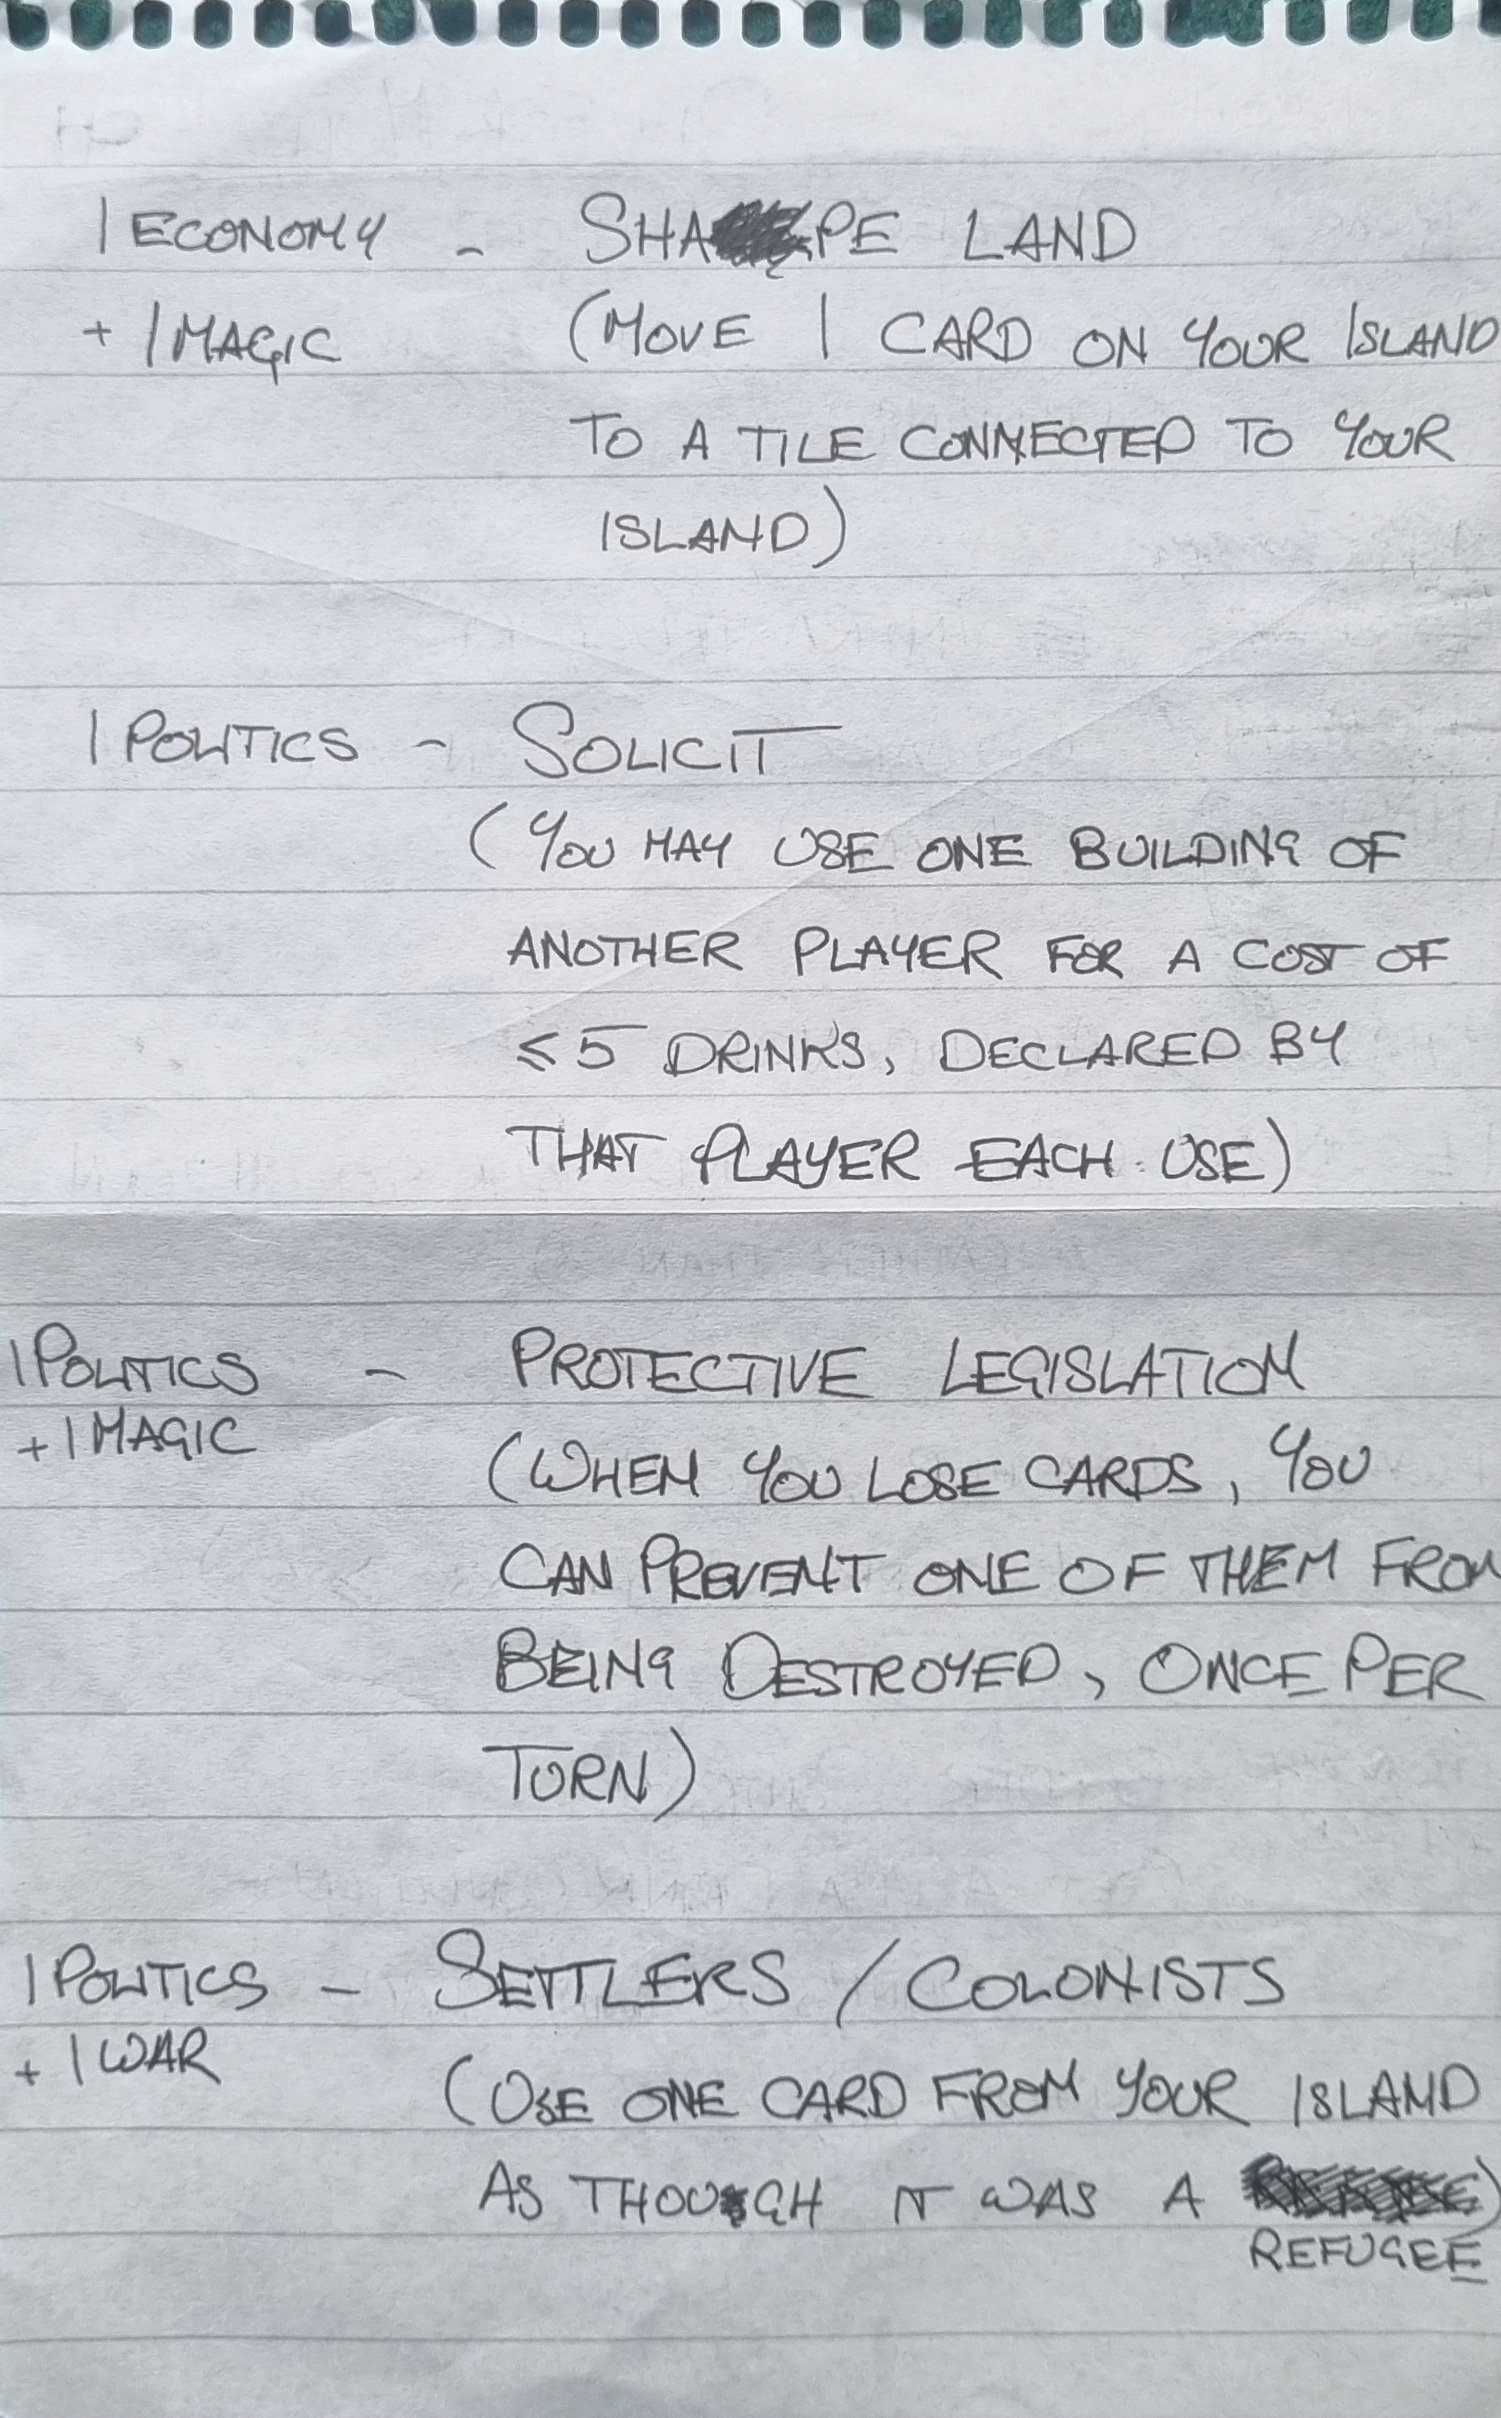 1 ECONOMY - SHAPE LAND
+ 1 MAGIC (MOVE 1 CARD ON YOUR ISLAND
TO A TILE CONNECTED TO YOUR
ISLAND)
1 POLITICS - SOLICIT
(YOU MAY USE ONE BUILDING OF
ANOTHER PLAYER FOR A COST OF
≤5 DRINKS, DECLARED BY
THAT PLAYER EACH USE)
1 POLITICS - PROTECTIVE LEGISLATION
+ 1 MAGIC (WHEN YOU LOSE CARDS, YOU
CAN PREVENT ONE OF THEM FROM
BEING DESTROYED, ONCE PER
TURN)
1 POLITICS - SETTLERS / COLONISTS
+ 1 WAR (USE ONE CARD FROM YOUR ISLAND
AS THOUGH IT WAS A )
REFUGEE